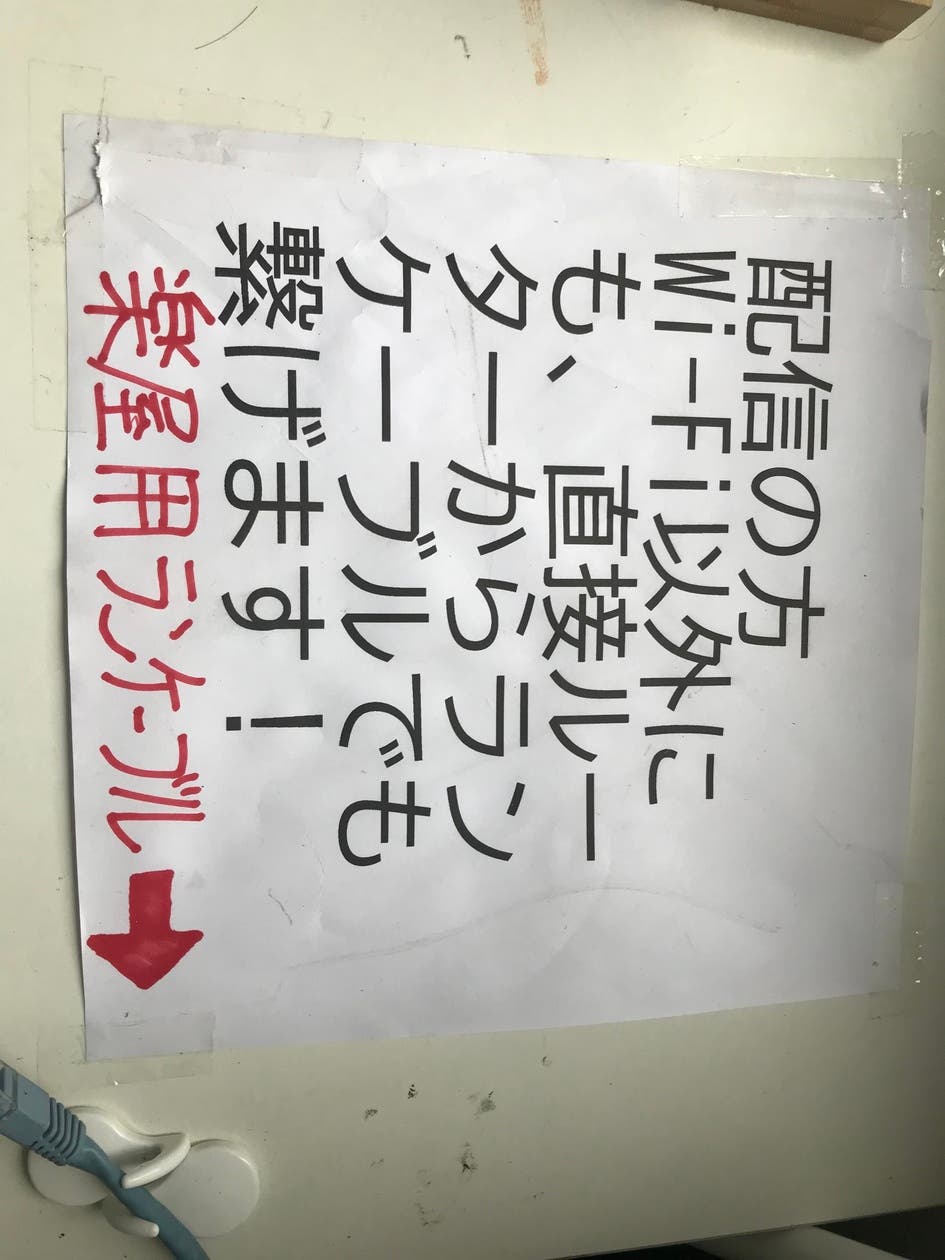 配信の方
Wi-Fi以外に
も、直接ルー
ターからラン
ケーブルでも
繋げます！
楽屋用ランケーブル